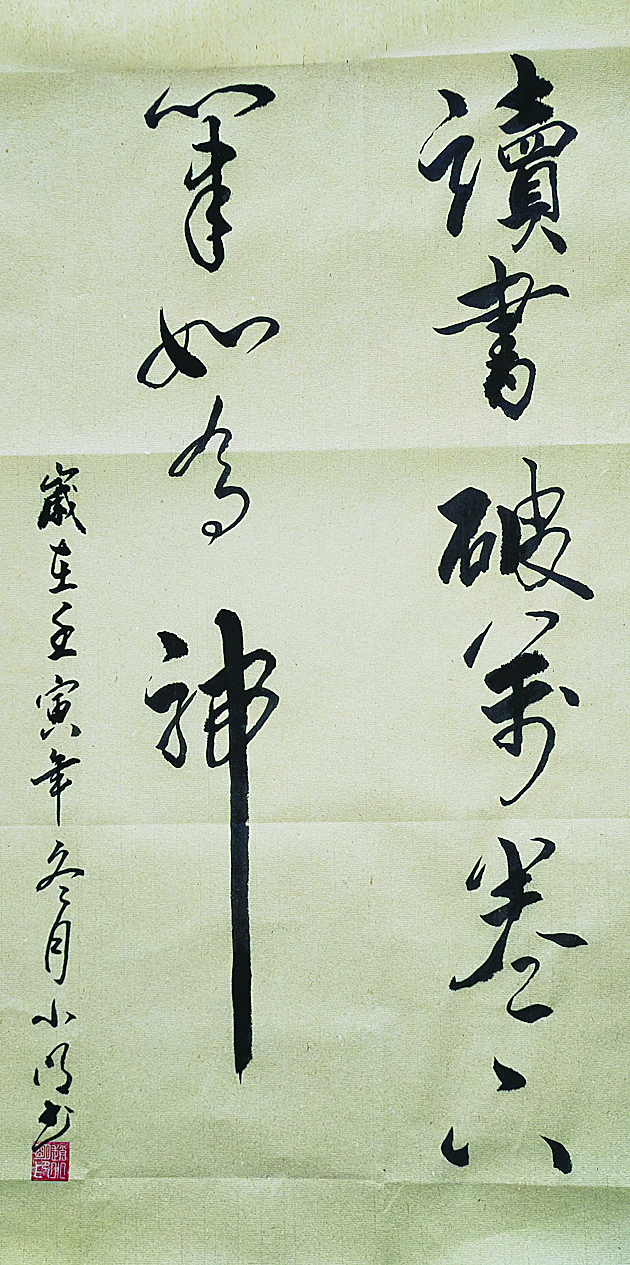 讀書破萬卷下
筆如有神
歲在壬寅年冬月小明书